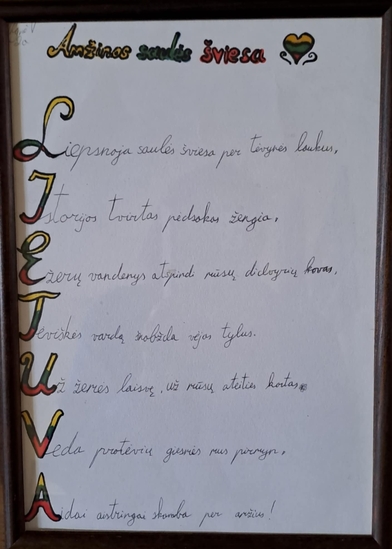 Amžinos saulės šviesa
Liepsnoja saulės šviesa per tėvynės laukus,
Istorijos tvirtas pėdsakas žengia,
Ežerų vandenys atspindi mūsų didvyrių kovas,
Tėviškės vardą šnabžda vėjas tylus.
Už žemės laisvę, už mūsų ateities kartas
Veda protėvių giesmės mus pirmyn,
Aidai aistringai skamba per amžius!